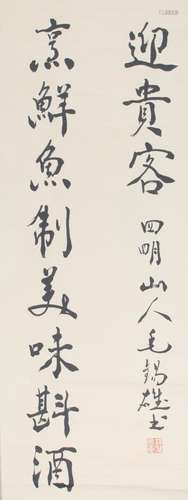 迎貴客
烹鮮魚制美味斟酒
四明山人毛錫雄书